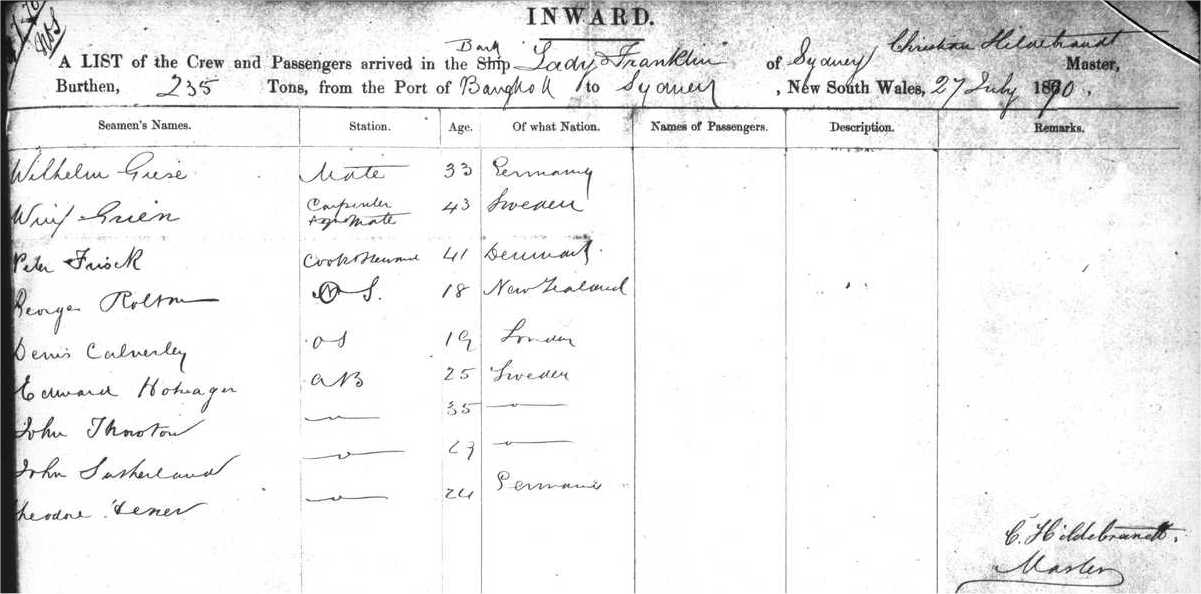 INWARD.
Bark
A LIST of the Crew and Passengers arrived in the Ship Lady Franklin of Sydney Christian Hildebrandt Master,
Burthen, 235 Tons, from the Port of Bangkok to Sydney, New South Wales, 27 July 1890.
Seamen's Names. Station. Age. Of what Nation. Names of Passengers. Description. Remarks.
Wilhelm Giese Mate 33 Germany
Carpenter
43 Sweden
Mate
Peter Frisck Cook & Steward 41 Denmark
George Rolton S. 18 New Zealand
Denis Calverley OS 19 London
Edward AB 25 Sweden
John Thornton — " — 35 — " —
John Sutherland — " — — " —
Theodore — " — 24 Germany
C. Hildebrandt.
Master